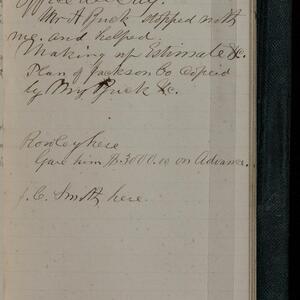 Office all day.
Mr H Buck stopped with
me and helped.
Making up Estimate &c.
Plan of Jackson Co Copeid
by Mr Buck &c.
Rowley here
Gave him $3000.00 on Advance.
J. C. Smith here.